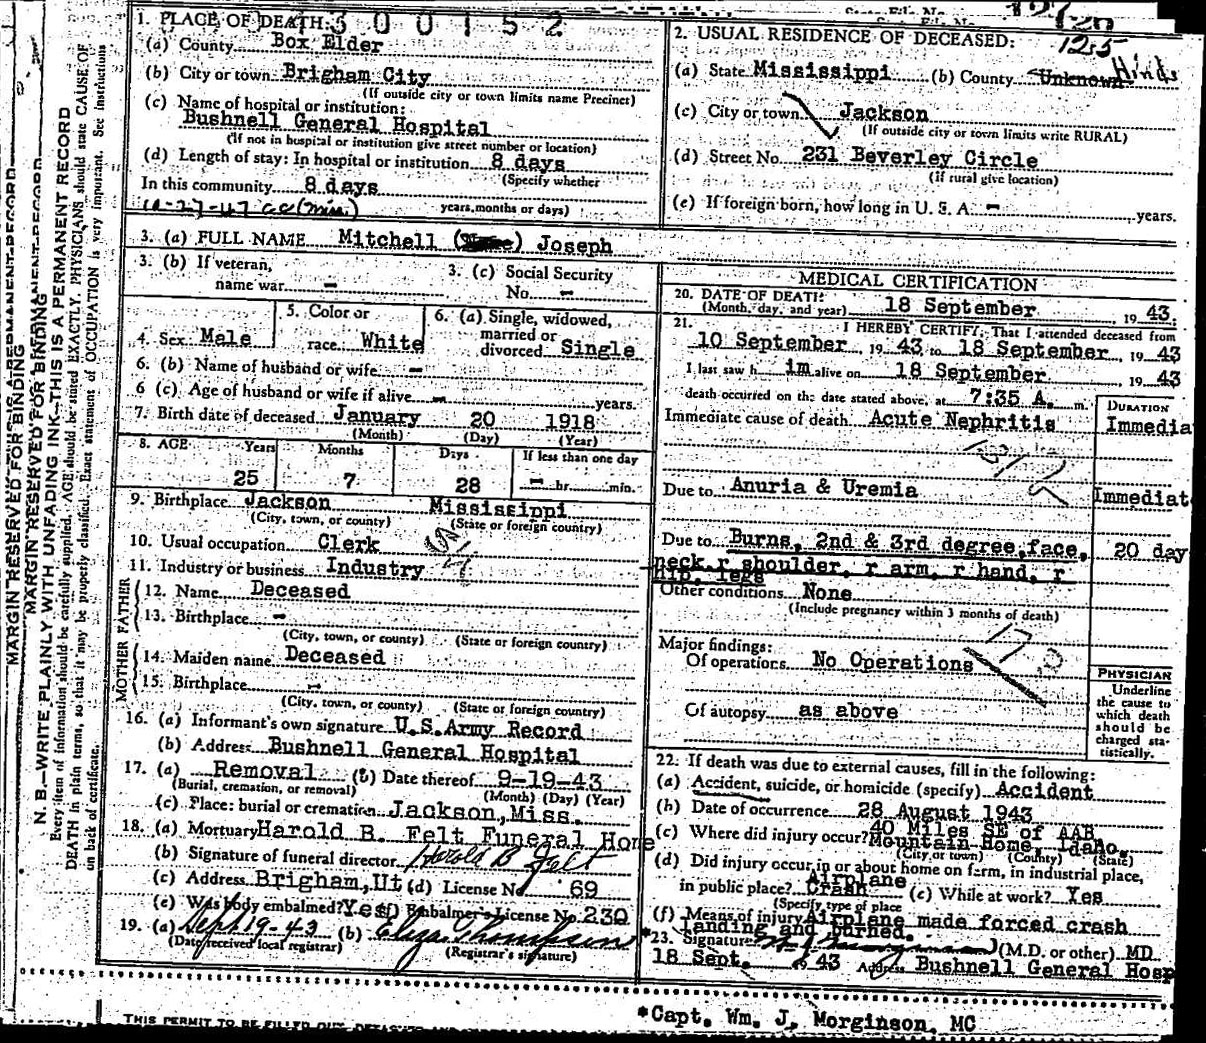 300152
1. PLACE OF DEATH:
(a) County Box Elder
(b) City or town Brigham City
(If outside city or town limits name Precinct)
(c) Name of hospital or institution:
Bushnell General Hospital
(If not in hospital or institution give street number or location)
(d) Length of stay: In hospital or institution 8 days
(Specify whether
In this community 8 days
years, months or days)
2. USUAL RESIDENCE OF DECEASED:
125
(a) State Mississippi (b) County Unknown Hinds
(c) City or town Jackson
(If outside city or town limits write RURAL)
(d) Street No. 231 Beverley Circle
(If rural give location)
(e) If foreign born, how long in U. S. A. - years.
3. (a) FULL NAME Mitchell ( ) Joseph
3. (b) If veteran, name war -
3. (c) Social Security No. -
4. Sex Male
5. Color or race White
6. (a) Single, widowed, married or divorced Single
6. (b) Name of husband or wife -
6 (c) Age of husband or wife if alive - years.
7. Birth date of deceased January 20 1918
(Month) (Day) (Year)
8. AGE Years Months Days If less than one day
25 7 28 - hr. min.
9. Birthplace Jackson Mississippi
(City, town, or county) (State or foreign country)
10. Usual occupation Clerk
11. Industry or business Industry
FATHER
12. Name Deceased
13. Birthplace -
(City, town, or county) (State or foreign country)
MOTHER
14. Maiden name Deceased
15. Birthplace -
(City, town, or county) (State or foreign country)
16. (a) Informant's own signature U.S. Army Record
(b) Address Bushnell General Hospital
17. (a) Removal (b) Date thereof 9-19-43
(Burial, cremation, or removal) (Month) (Day) (Year)
(c) Place: burial or cremation Jackson, Miss.
18. (a) Mortuary Harold B. Felt Funeral Home
(b) Signature of funeral director Harold B Felt
(c) Address Brigham, Ut (d) License No 69
(e) Was body embalmed? Yes (f) Embalmer's License No. 230
19. (a) Sept 19-43 (b) Eliza Thompson
(Date received local registrar) (Registrar's signature)
MEDICAL CERTIFICATION
20. DATE OF DEATH: 18 September 19 43.
(Month, day, and year)
21. I HEREBY CERTIFY, That I attended deceased from
10 September, 19 43 to 18 September, 19 43
I last saw h im alive on 18 September 19 43
death occurred on the date stated above, at 7:35 A. m.
DURATION
Immediate cause of death Acute Nephritis Immedia
Due to Anuria & Uremia Immediat
Due to Burns, 2nd & 3rd degree, face, 20 day
neck, r shoulder, r arm, r hand, r
hip, legs
Other conditions None
(Include pregnancy within 3 months of death)
Major findings:
Of operations No Operations
Of autopsy as above
PHYSICIAN
Underline the cause to which death should be charged statistically.
22. If death was due to external causes, fill in the following:
(a) Accident, suicide, or homicide (specify) Accident
(b) Date of occurrence 28 August 1943
40 Miles SE of AAB
(c) Where did injury occur? Mountain Home, Idaho.
(City or town) (County) (State)
(d) Did injury occur in or about home on farm, in industrial place,
in public place? Airplane Crash (e) While at work? Yes
(Specify type of place
(f) Means of injury Airplane made forced crash
landing and burned.
*23. Signature (M.D. or other) MD
18 Sept. 19 43 Address Bushnell General Hosp
*Capt. Wm. J. Morginson, MC
MARGIN RESERVED FOR BINDING
MARGIN RESERVED FOR BINDING
N. B.—WRITE PLAINLY WITH UNFADING INK—THIS IS A PERMANENT RECORD
Every item of information should be carefully supplied. AGE should be stated EXACTLY. PHYSICIANS should state CAUSE OF
DEATH in plain terms, so that it may be properly classified. Exact statement of OCCUPATION is very important. See Instructions
on back of certificate.